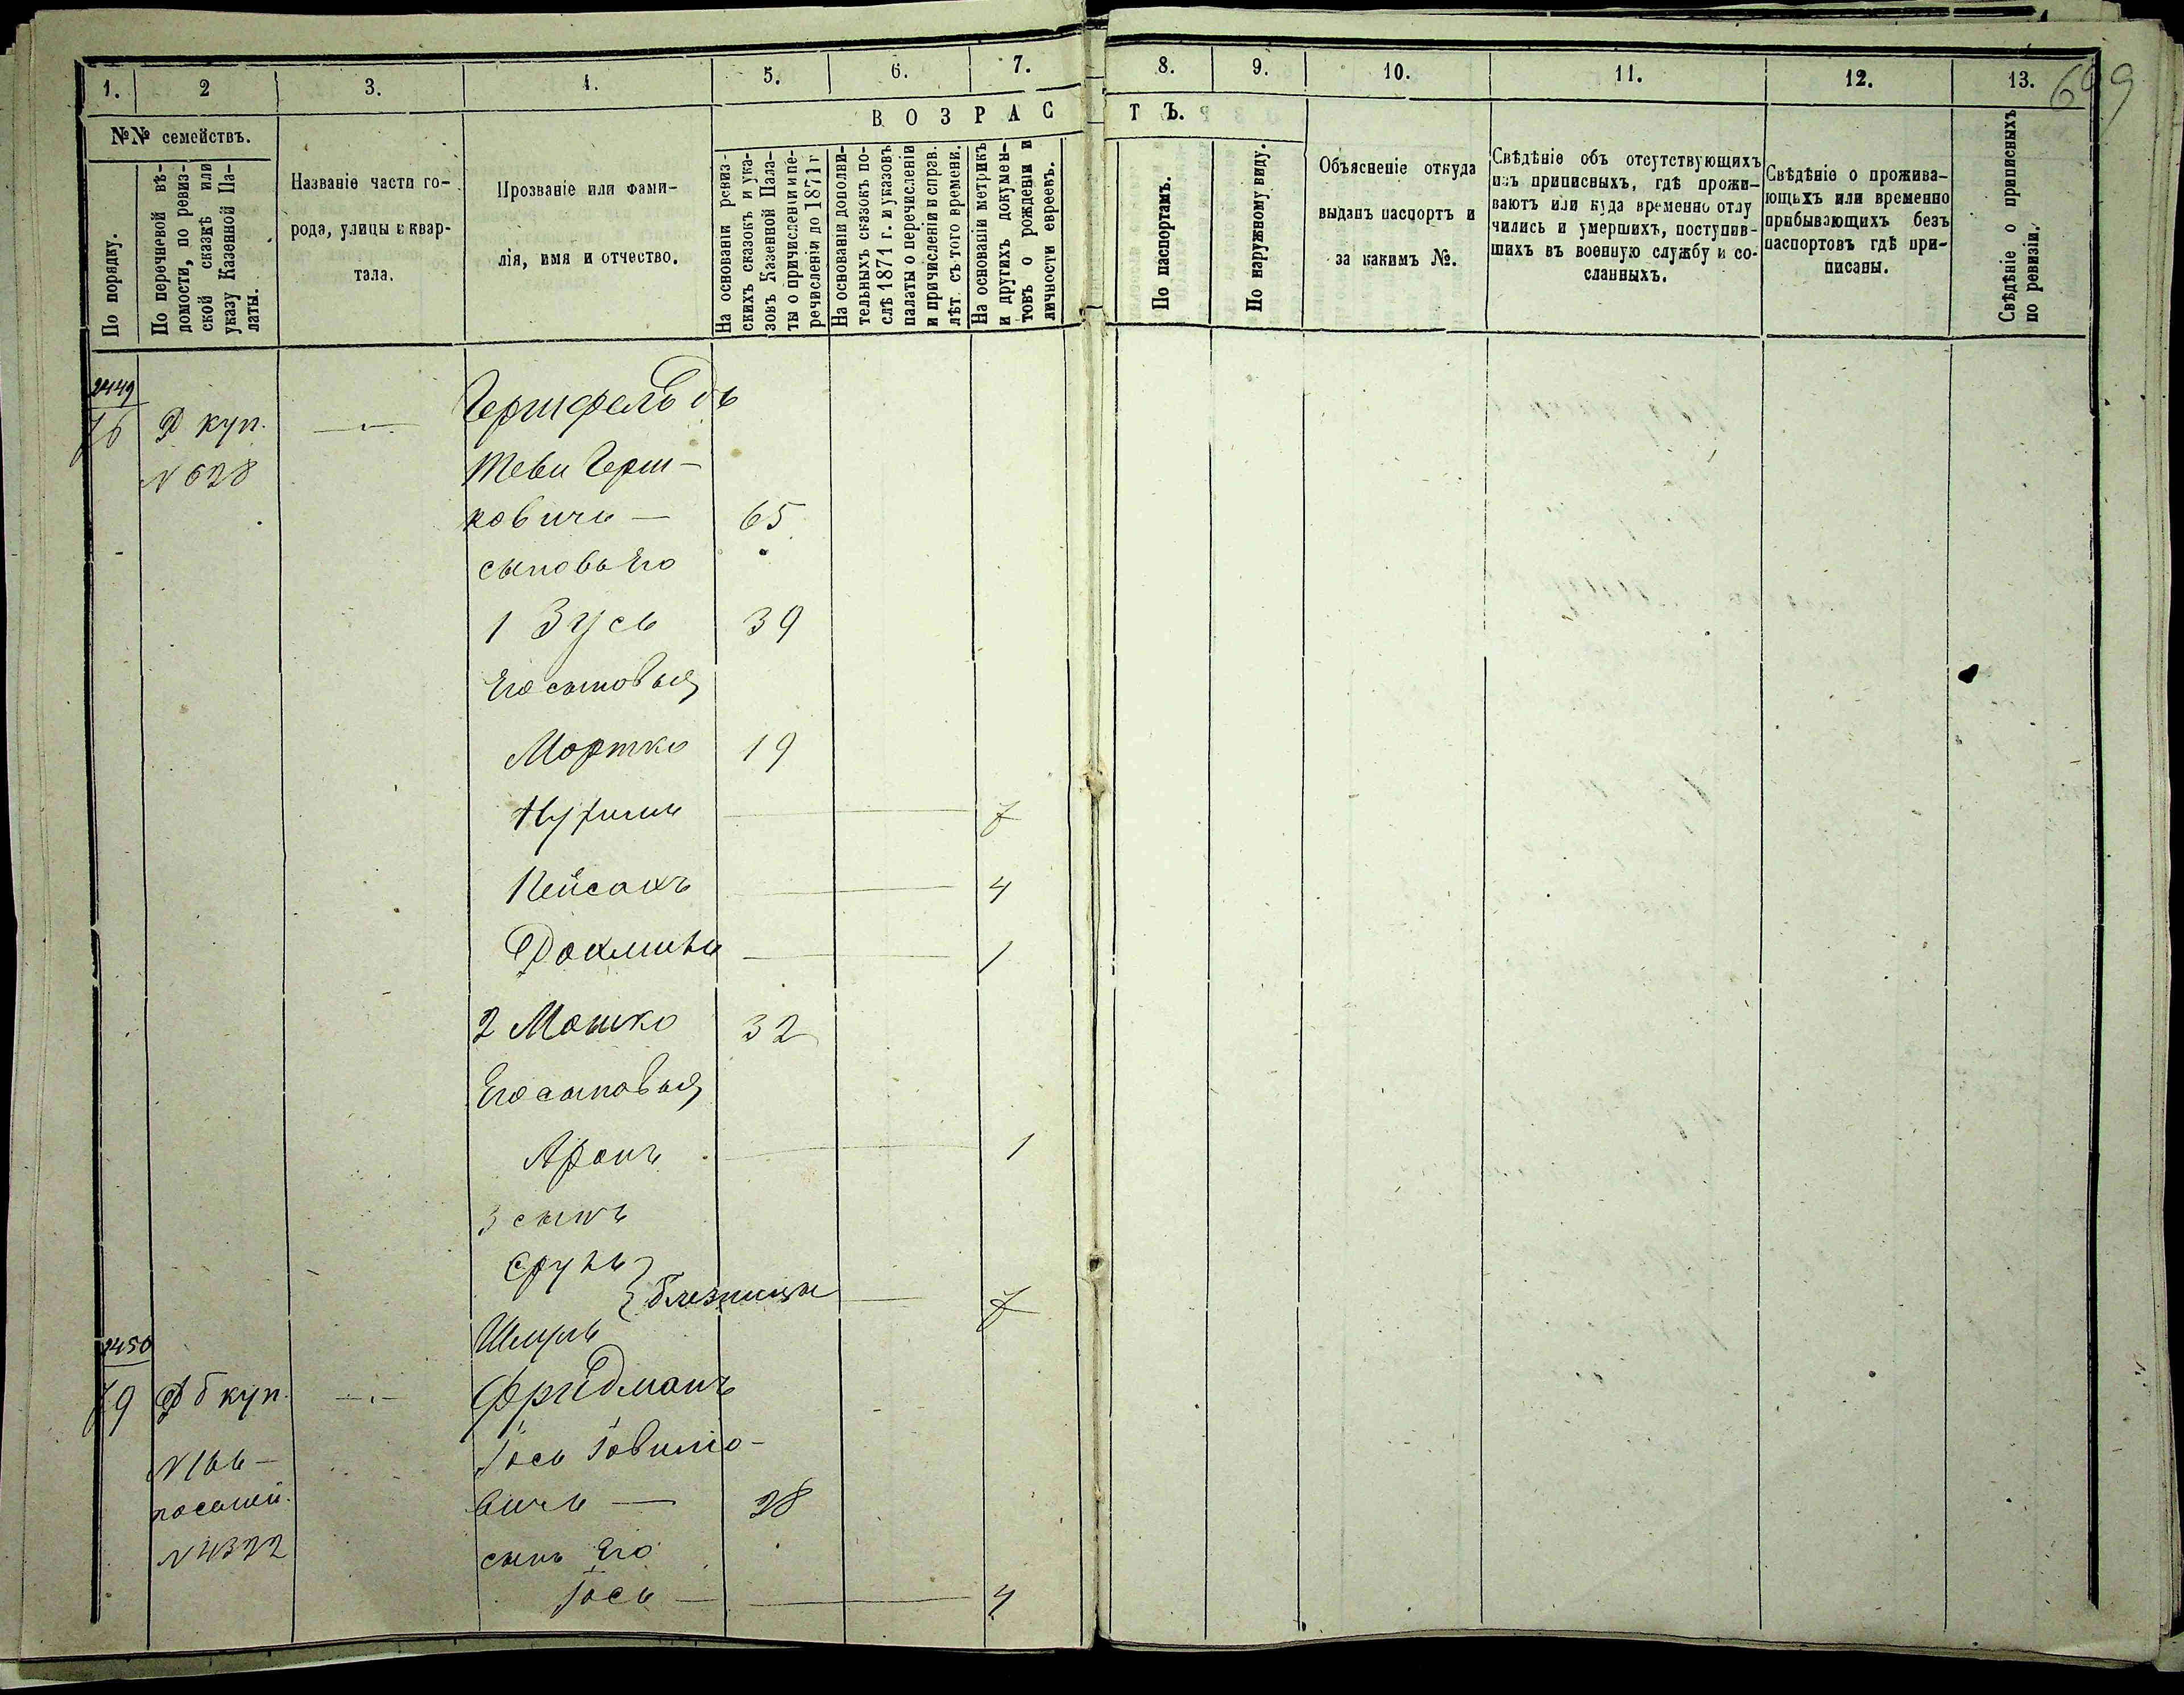 1. 2 3. 4. 5. 6. 7. 8. 9. 10. 11. 12. 13.
В О З Р А С Т Ъ.
№№ семействъ.
По порядку.
По перечневой вѣ-
домости, по ревиз-
ской сказкѣ или
указу Казенной Па-
латы.
Названіе части го-
рода, улицы и квар-
тала.
Прозваніе или фами-
лія, имя и отчество.
На основаніи ревиз-
скихъ сказокъ и ука-
зовъ Казенной Пала-
ты о причисленіи и пе-
речисленіи до 1871 г
На основаніи дополни-
тельныхъ сказокъ по-
слѣ 1871 г. и указовъ
палаты о перечисленіи
и причисленіи и справ.
лѣт. съ того времени.
На основаніи метрикъ
и другихъ докумен-
товъ о рожденіи и
личности евреевъ.
По паспортамъ.
По наружному виду.
Объясненіе откуда
выданъ паспортъ и
за какимъ №.
Свѣдѣніе объ отсутствующихъ
изъ приписныхъ, гдѣ прожи-
ваютъ или куда временно отлу
чились и умершихъ, поступив-
шихъ въ военную службу и со-
сланныхъ.
Свѣдѣніе о прожива-
ющихъ или временно
прибывающихъ безъ
паспортовъ гдѣ при-
писаны.
Свѣдѣніе о приписныхъ
по ревизіи.
2449
куп. Гершфельдъ
N 628 Теви Герш-
ковичъ — 65
сыновь Его
1 Зусь 39
Его сыновья
Мортко 19
7
Пейсахъ 4
1
2 Мошко 32
Его сыновья
Аронъ 1
3 сынъ
Сруль
близнецы 7
Шмуль
2450
79 куп. Фридманъ
N 166 — Іось
посемей. вичъ — 28
N 4322 сынъ Его
Іось — 4